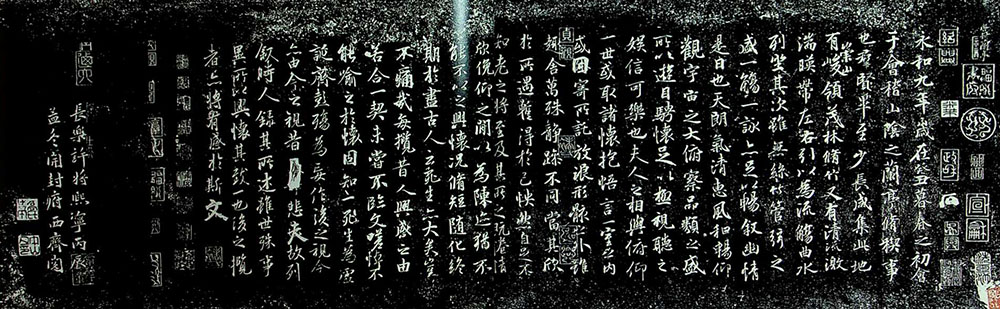 永和九年歲在癸丑暮春之初會
于會稽山陰之蘭亭脩稧事
也群賢畢至少長咸集此地
有崇山峻領茂林脩竹又有清流激
湍暎帶左右引以為流觴曲水
列坐其次雖無絲竹管弦之
盛一觴一詠亦足以暢叙幽情
是日也天朗氣清惠風和暢仰
觀宇宙之大俯察品類之盛
所以遊目騁懷足以極視聽之
娛信可樂也夫人之相與俯仰
一世或取諸懷抱悟言一室之內
或因寄所託放浪形骸之外雖
趣舍萬殊静躁不同當其欣
於所遇蹔得於己怏然自足不
知老之將至及其所之既惓情
欣俛仰之閒以為陳迹猶不
能不以之興懷況脩短隨化終
期於盡古人云死生亦大矣豈
不痛哉每攬昔人興感之由
若合一契未嘗不臨文嗟悼不
能喻之於懷固知一死生為虛
誕齊彭殤為妄作後之視今
亦由今之視昔悲夫故列
叙時人錄其所述雖世殊事
異所以興懷其致一也後之攬
者亦將有感於斯文
長樂許將熙寧丙辰
孟冬開封府西齋閱